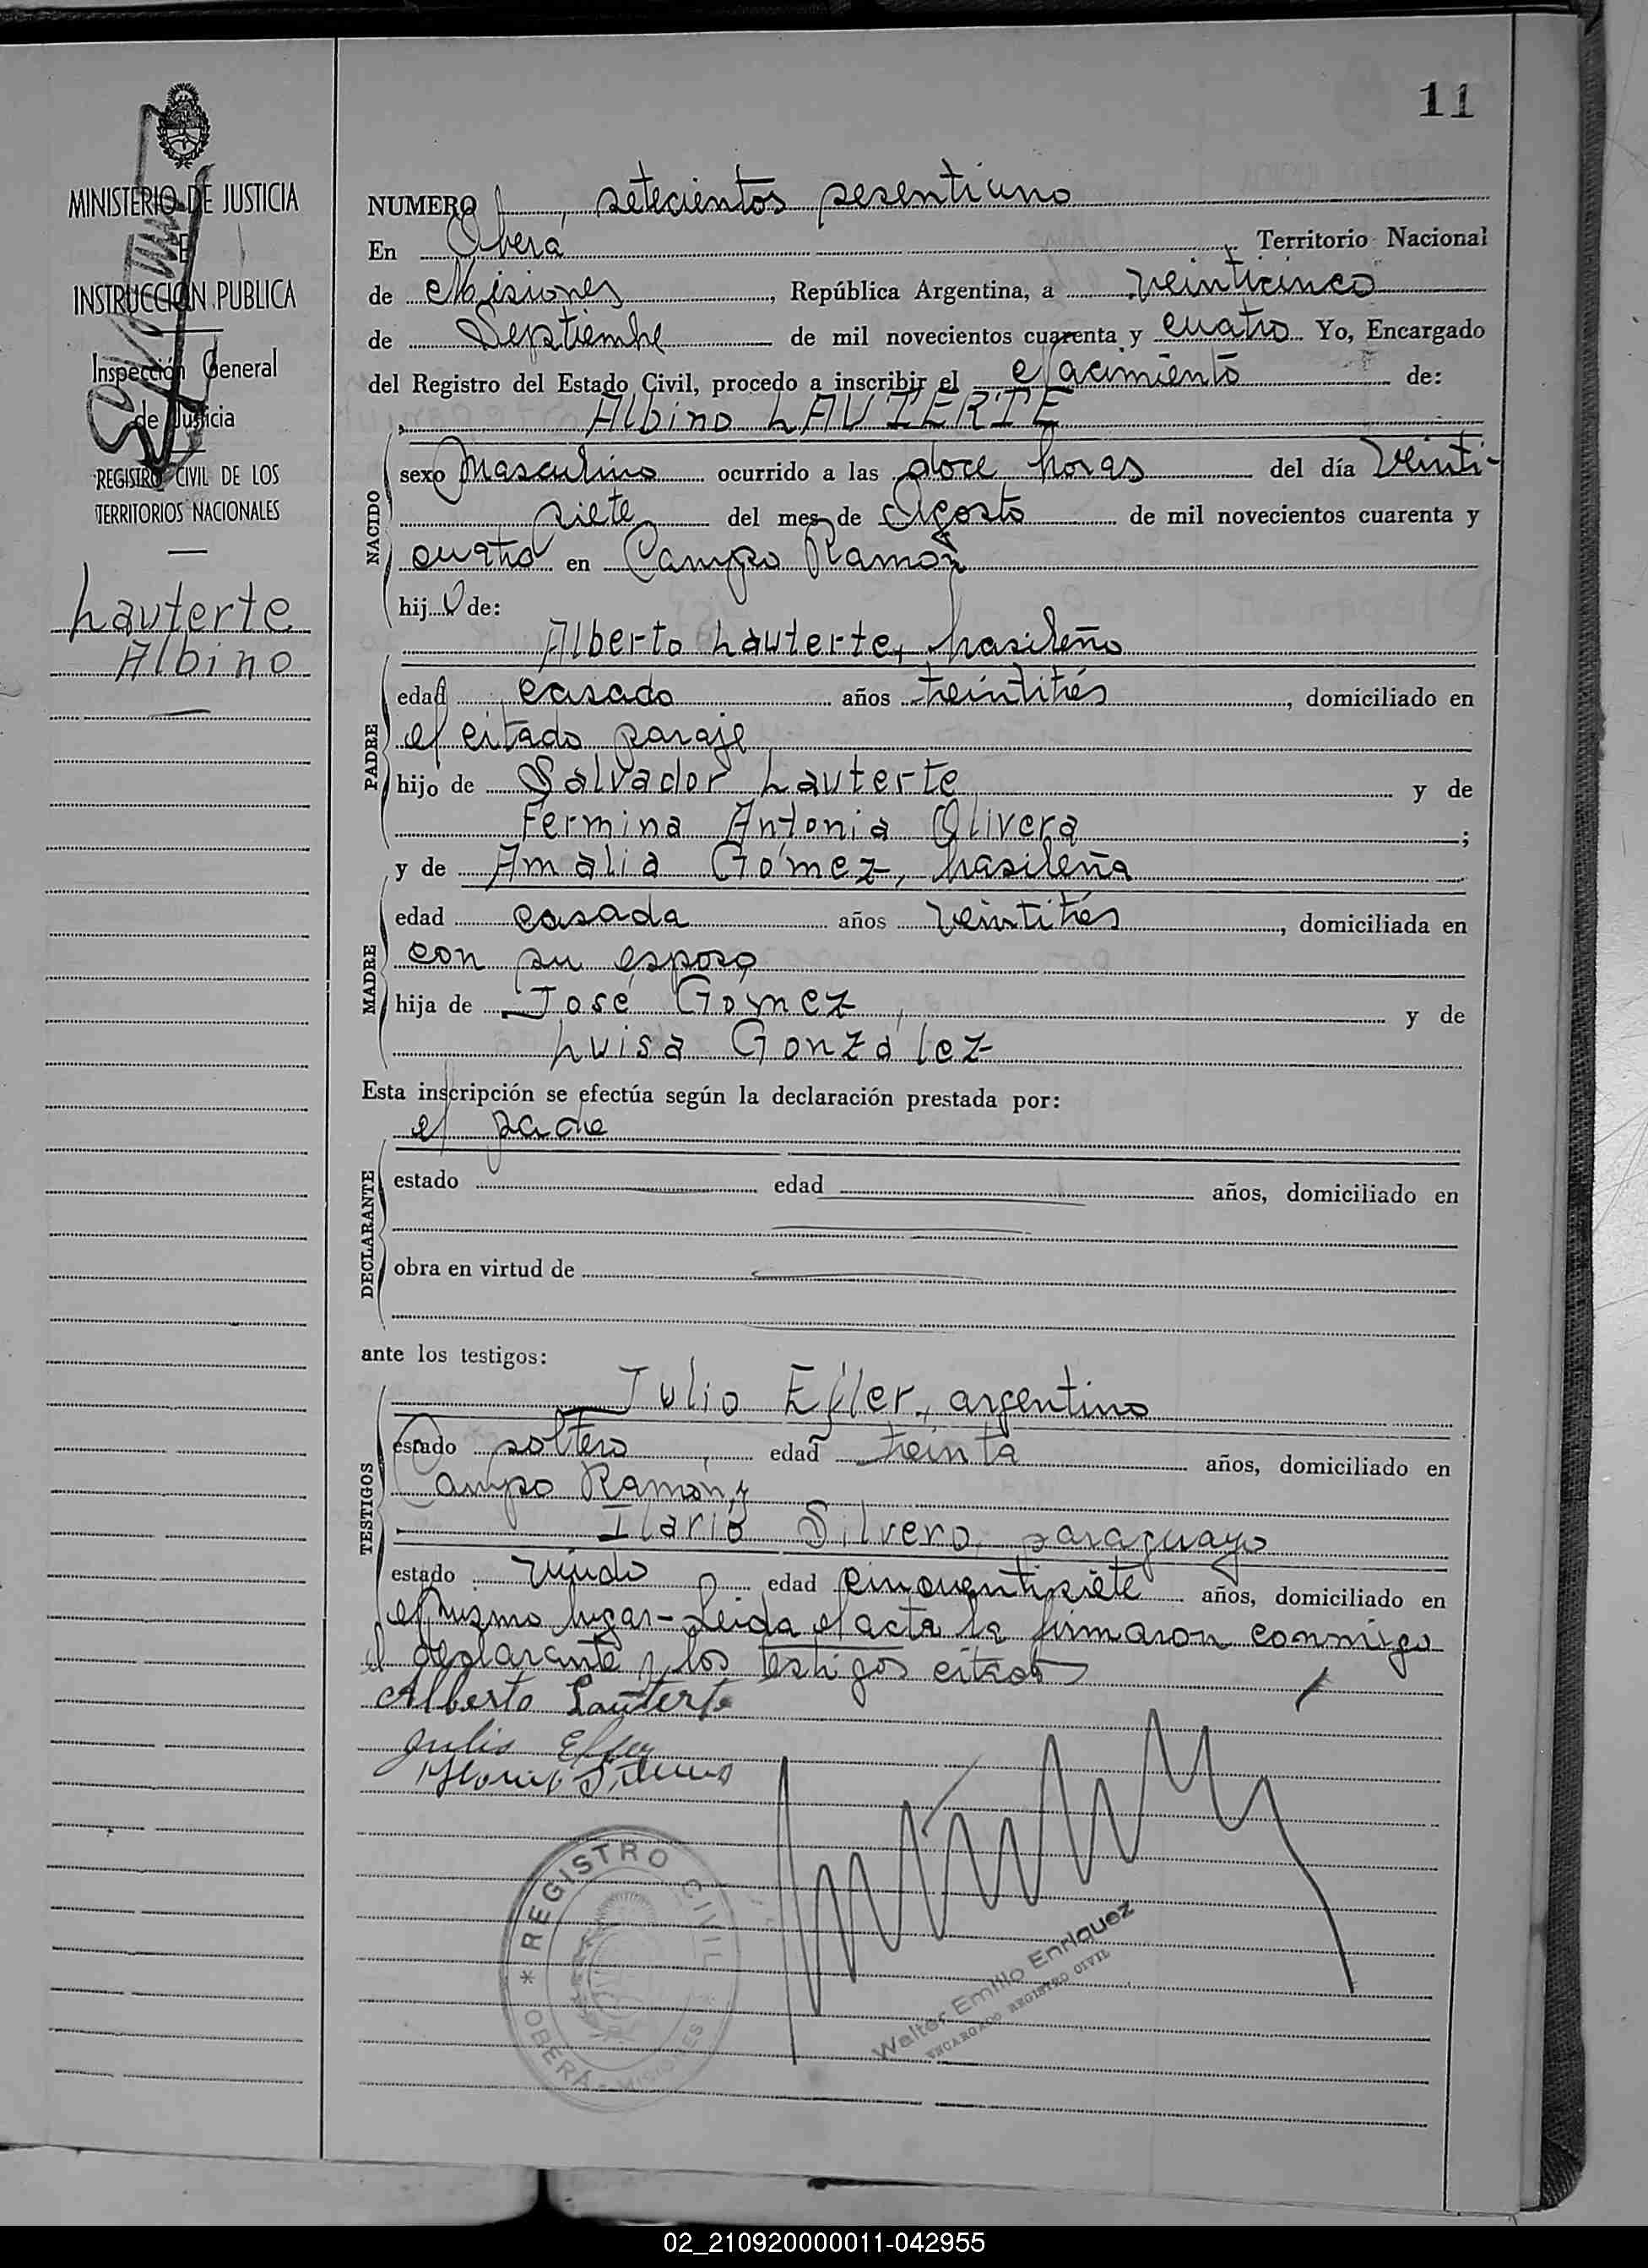 11
MINISTERIO DE JUSTICIA
E
INSTRUCCION PUBLICA
Inspección General
de Justicia
REGISTRO CIVIL DE LOS
TERRITORIOS NACIONALES
Lauterte
Albino
NUMERO setecientos sesentiuno
En Oberá Territorio Nacional
de Misiones, República Argentina, a veinticinco
de Septiembre de mil novecientos cuarenta y cuatro Yo, Encargado
del Registro del Estado Civil, procedo a inscribir el Nacimiento de:
Albino LAUTERTE
NACIDO
sexo Masculino ocurrido a las doce horas del día Veinti-
siete del mes de Agosto de mil novecientos cuarenta y
cuatro en Campo Ramón
hijo de:
Alberto Lauterte, brasileño
PADRE
edad casado años treintitrés, domiciliado en
el citado paraje
hijo de Salvador Lauterte y de
Fermina Antonia Olivera;
y de Amalia Gómez, brasileña
MADRE
edad casada años veintitrés, domiciliada en
con su esposo
hija de José Gómez y de
Luisa González
Esta inscripción se efectúa según la declaración prestada por:
el padre
DECLARANTE
estado edad años, domiciliado en
obra en virtud de
ante los testigos:
Julio Efler, argentino
TESTIGOS
estado soltero edad treinta años, domiciliado en
Campo Ramón y
Ilario Silvero, paraguayo
estado viudo edad cincuentisiete años, domiciliado en
el mismo lugar - Leida el acta la firmaron conmigo
el declarante y los testigos citados
Alberto Lauterte
Julio Efler
Silvero
REGISTRO CIVIL
* OBERÁ - MISIONES *
Walter Emilio Enriquez
ENCARGADO REGISTRO CIVIL
02_210920000011-042955